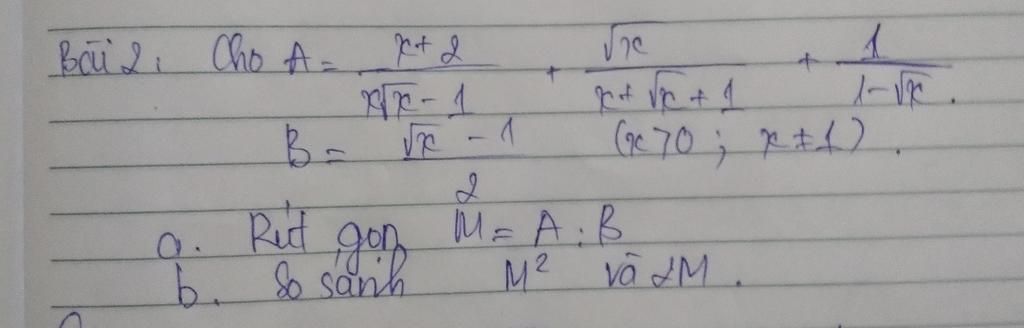 Bài 2: Cho A = \frac{x+2}{x\sqrt{x}-1} + \frac{\sqrt{x}}{x+\sqrt{x}+1} + \frac{1}{1-\sqrt{x}}.
B = \frac{\sqrt{x}-1}{2} (x>0; x≠1).
a. Rút gọn M = A : B
b. So sánh M² và 2M.